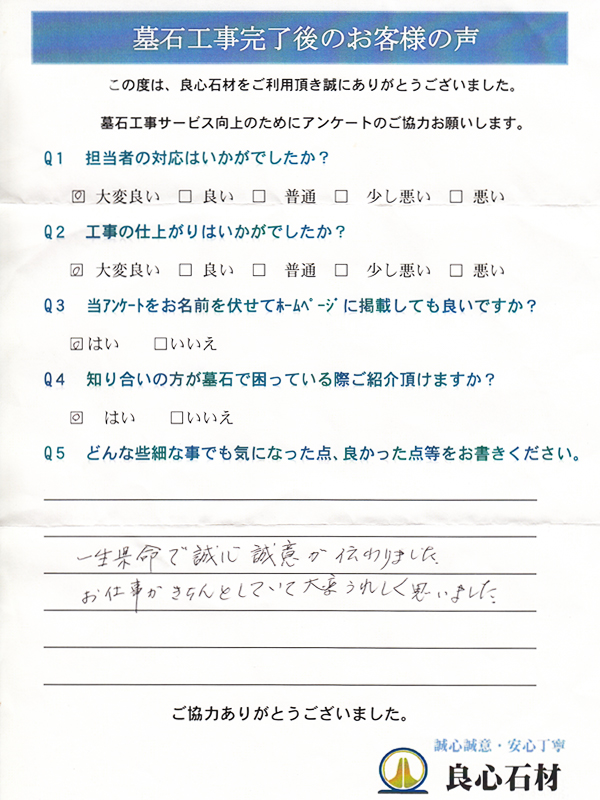 墓石工事完了後のお客様の声
この度は、良心石材をご利用頂き誠にありがとうございました。
墓石工事サービス向上のためにアンケートのご協力お願いします。
Q1 担当者の対応はいかがでしたか？
☑ 大変良い □ 良い □ 普通 □ 少し悪い □ 悪い
Q2 工事の仕上がりはいかがでしたか？
☑ 大変良い □ 良い □ 普通 □ 少し悪い □ 悪い
Q3 当ｱﾝｹｰﾄをお名前を伏せてﾎｰﾑﾍﾟｰｼﾞに掲載しても良いですか？
☑はい □いいえ
Q4 知り合いの方が墓石で困っている際ご紹介頂けますか？
☑ はい □いいえ
Q5 どんな些細な事でも気になった点、良かった点等をお書きください。
一生県命で誠心誠意が伝わりました。
お仕事がきちんとしていて大変うれしく思いました。
ご協力ありがとうございました。
誠心誠意・安心丁寧
良心石材